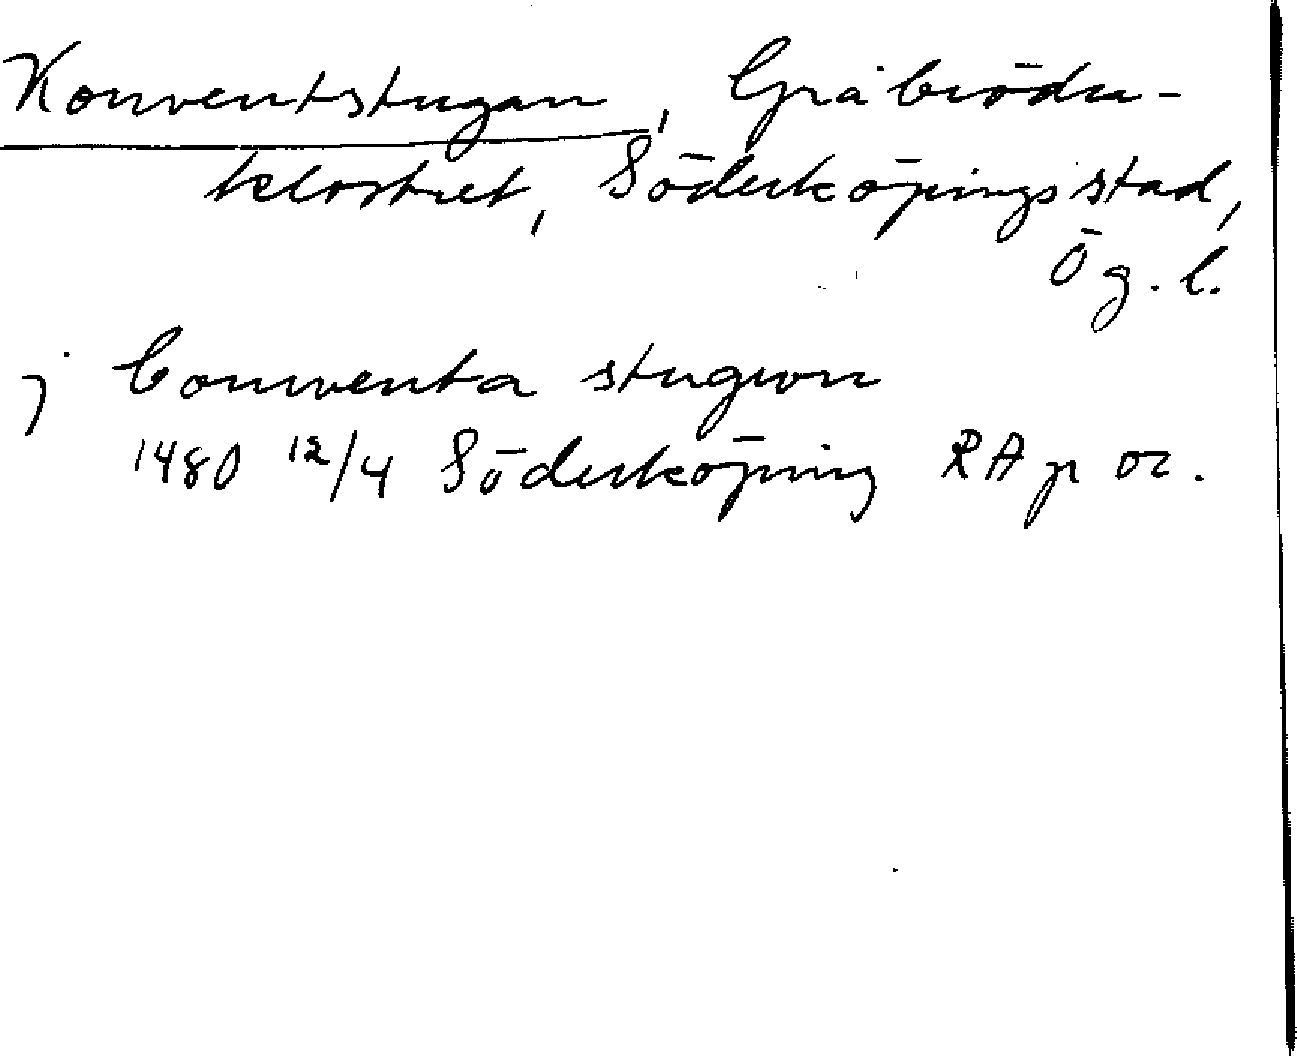 Konventstugan, Gråbrödra-
klostret, Söderköpings stad,
Ög. l.
j Conuenta stugwn
1480 12/4 Söderköping RA p or.